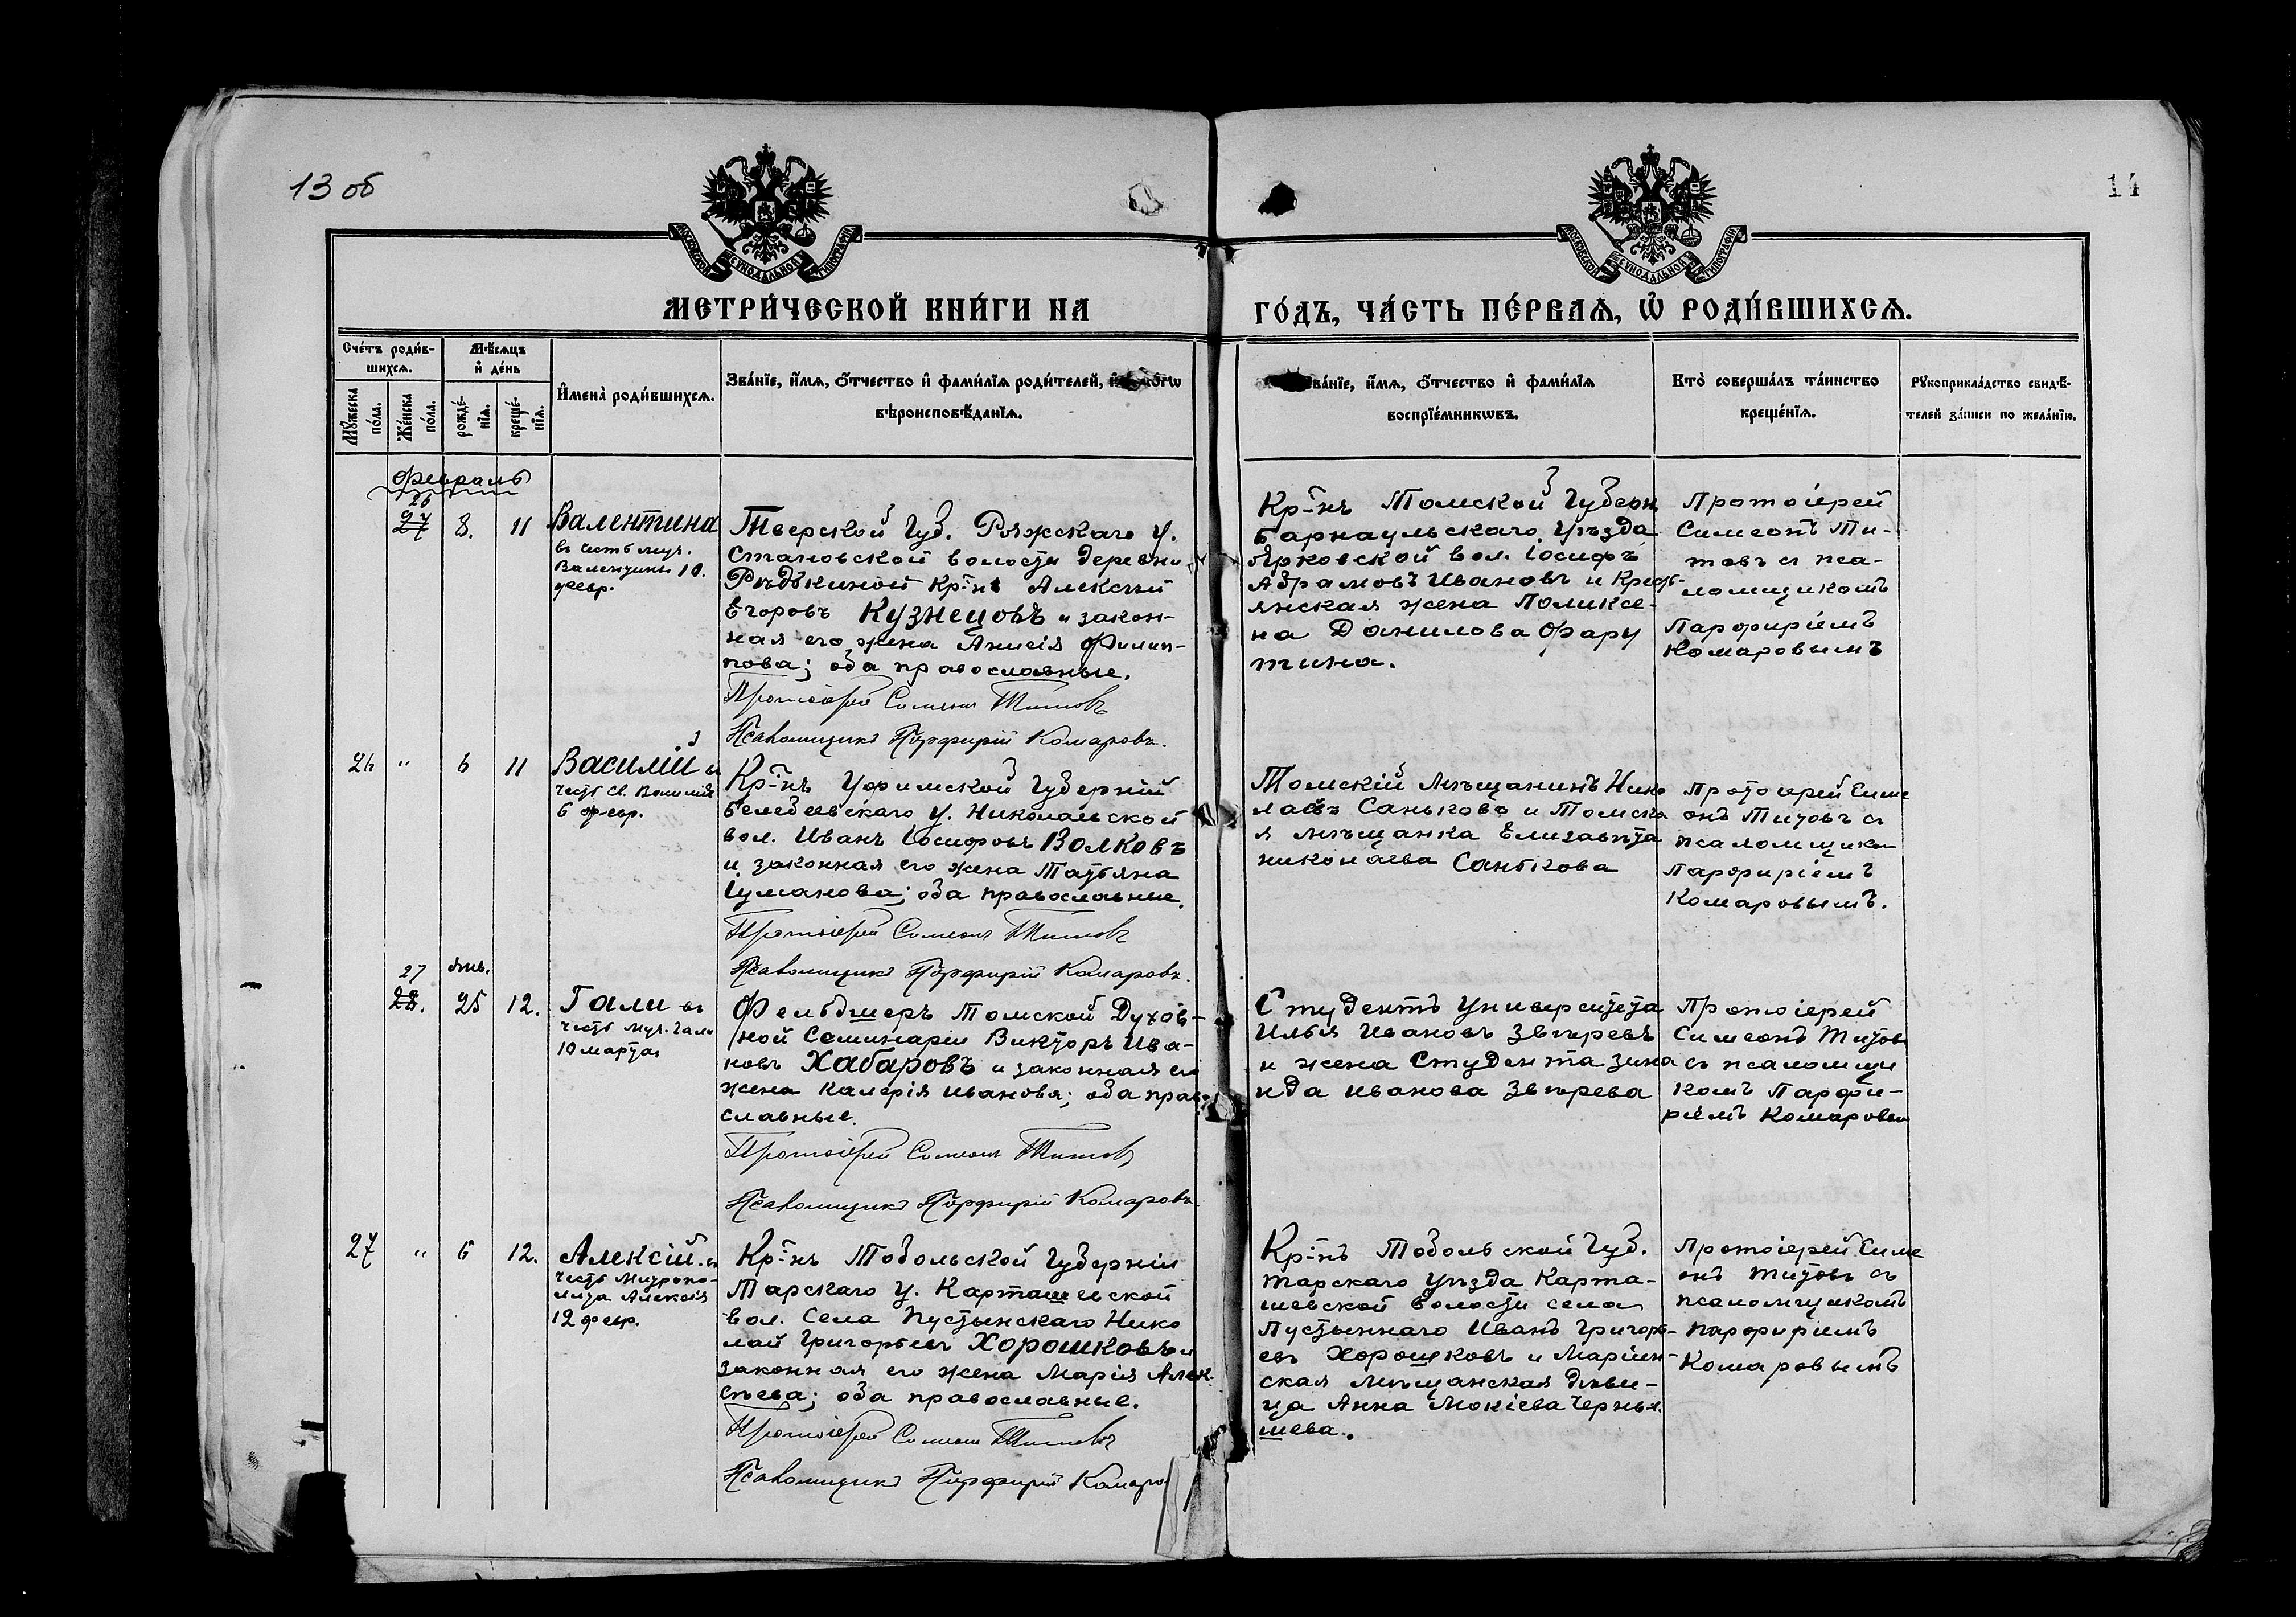 13 об
14
МОСКОВСКОЙ СѴНОДАЛЬНОЙ ТИПОГРАФІИ
МОСКОВСКОЙ СѴНОДАЛЬНОЙ ТИПОГРАФІИ
МЕТРИ́ЧЕСКОЙ КНИ́ГИ НА
ГО́ДЪ, ЧА́СТЬ ПЕ́РВАѦ, Ѡ РОДИ́ВШИХСѦ.
Сче́тъ роди́в-
шихсѧ.
Мѣ́сяцъ
и де́нь
Мꙋ́жеска
по́ла.
Же́нска
по́ла.
рожде́-
нїѧ.
креще́-
нїѧ.
Имена̀ роди́вшихсѧ.
Зва́нїе, и́мѧ, о́тчество и фами́лїѧ роди́телей,
вѣроисповѣ́данїѧ.
ва́нїе, и́мѧ, о́тчество и фами́лїѧ
воспрїе́мникѡвъ.
Кто̀ соверша́лъ та́инство
креще́нїѧ.
Рꙋкоприкла́дство свидѣ́-
телей за́писи по жела́нїю.
Февраль
26
27 8. 11
Валентина
въ честь муч.
Валентины 10.
февр.
Тверской Губ. Ряжскаго у.
Становской волости деревни
Рѣдькиной Кр-нъ Алексѣй
Егоровъ Кузнецовъ и закон-
ная его жена Анисія Филип-
пова; оба православные.
Протоіерей Симеонъ Титовъ
Псаломщикъ Порфирій Комаровъ.
Кр-нъ Томской Губерн
Барнаульскаго уѣзда
Ярковской вол. Іосифъ
Абрамовъ Ивановъ и Крест-
янская жена Поликсе-
на Данилова Фару
тина.
Протоіерей
Симеонъ Ти-
товъ съ пса-
ломщикомъ
Парфиріемъ
Комаровымъ
26 " 6 11
Василій въ
честь св. Василія
6 февр.
Кр-нъ Уфимской Губерній
Белебеевскаго у. Николаевской
вол. Иванъ Іосифовъ Волковъ
и законная его жена Татьяна
оба православные.
Протоіерей Симеонъ Титовъ
Псаломщикъ Порфирій Комаровъ.
Томскій мѣщанинъ Нико
лаевъ Саньковъ и Томска
я мѣщанка Елизавѣта
николаева Санькова
Протоіерей Симе
онъ Титовъ съ
псаломщиком
Парфиріемъ
Комаровымъ.
27
28. янв. 25 12.
Гали въ
честь муч. Гали
10 марта
Фельдшеръ Томской Духов-
ной Семинаріи Викторъ Ива-
новъ Хабаровъ и законная его
жена Калерія Иванова; оба право-
славные.
Протоіерей Симеонъ Титовъ
Псаломщикъ Порфирій Комаровъ.
Студентъ Университета
Илья Ивановъ Звѣревъ
и жена Студента Зина
ида Иванова Звѣрева
Протоіерей
Симеонъ Титовъ
съ псаломщи
комъ Парфи-
ріемъ Комаровы
27 " 6 12.
Алексій. въ
честь Митропо-
лита Алексія
12 февр.
Кр-нъ Тобольской Губерніи
Тарскаго у. Карташевской
вол. Села Пустынскаго Нико
лай Григорьевъ Хорошковъ и
законная его жена Марія Алек-
сѣева; оба православные.
Протоіерей Симеонъ Титовъ
Псаломщикъ Порфирій Комаро
Кр-нъ Тобольской Губ.
Тарскаго уѣзда Карта-
шевской волости села
Пустыннаго Иванъ Григорь-
евъ Хорошковъ и Маріин-
ская мѣщанская дѣви-
ца Анна Мокіева Черны-
шева.
Протоіерей Симе
онъ Титовъ съ
псаломщикомъ
Парфиріемъ
Комаровымъ